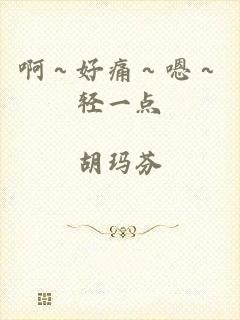 啊～好痛～嗯～
轻一点
胡玛芬